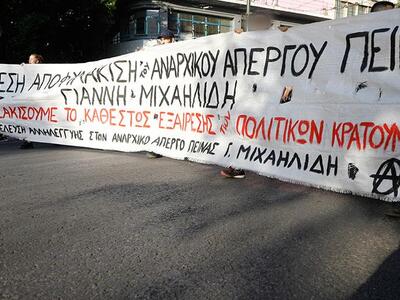 ΕΣΗ ΑΠΟΦΥΛΑΚΙΣΗ ΤΟΥ ΑΝΑΡΧΙΚΟΥ ΑΠΕΡΓΟΥ ΠΕΙΝ
ΓΙΑΝΝΗ ΜΙΧΑΗΛΙΔΗ
ΑΚΙΣΟΥΜΕ ΤΟ "ΚΑΘΕΣΤΩΣ ΕΞΑΙΡΕΣΗΣ" ΤΩΝ ΠΟΛΙΤΙΚΩΝ ΚΡΑΤΟΥΜ
ΕΛΕΥΣΗ ΑΛΛΗΛΕΓΓΥΗΣ ΣΤΟΝ ΑΝΑΡΧΙΚΟ ΑΠΕΡΓΟ ΠΕΙΝΑΣ Γ. ΜΙΧΑΗΛΙΔΗ